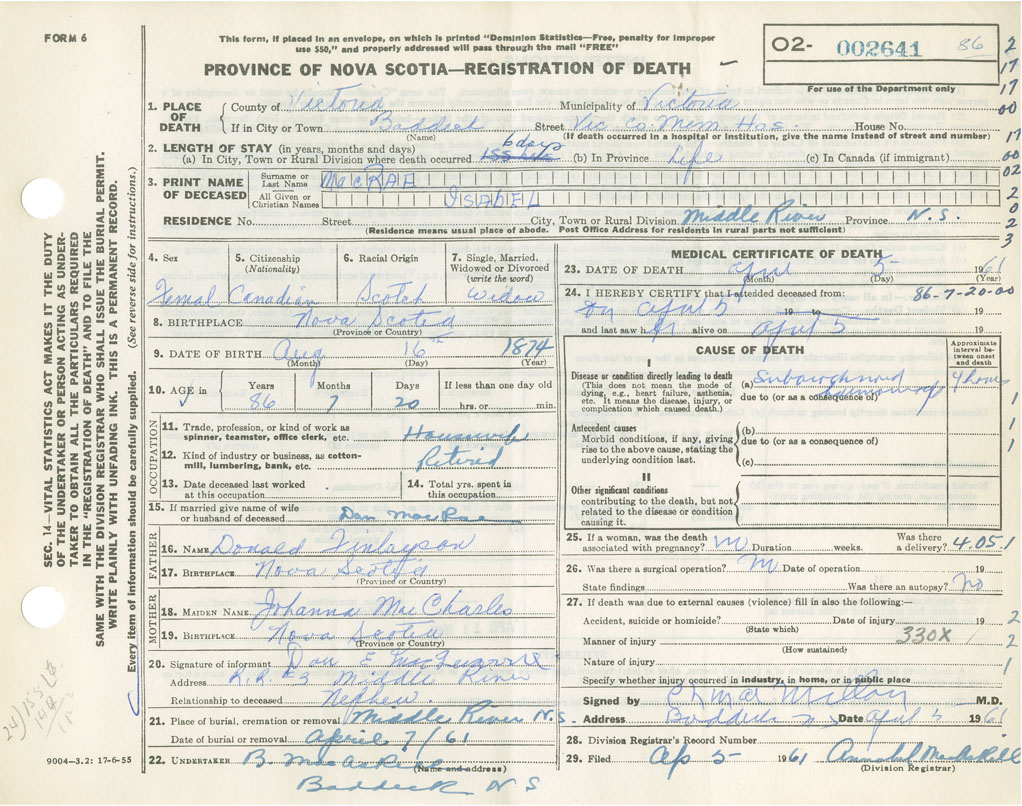 FORM 6
This form, if placed in an envelope, on which is printed "Dominion Statistics—Free, penalty for improper
use $50," and properly addressed will pass through the mail "FREE"
PROVINCE OF NOVA SCOTIA—REGISTRATION OF DEATH
02- 002641 86
For use of the Department only
2
17
17
00
17
00
02
2
0
2
3
SEC. 14—VITAL STATISTICS ACT MAKES IT THE DUTY
OF THE UNDERTAKER OR PERSON ACTING AS UNDER-
TAKER TO OBTAIN ALL THE PARTICULARS REQUIRED
IN THE "REGISTRATION OF DEATH" AND TO FILE THE
SAME WITH THE DIVISION REGISTRAR WHO SHALL ISSUE THE BURIAL PERMIT.
WRITE PLAINLY WITH UNFADING INK. THIS IS A PERMANENT RECORD.
Every item of information should be carefully supplied. (See reverse side for instructions.)
1. PLACE OF DEATH
County of Victoria Municipality of Victoria
If in City or Town Baddeck Street Vic Co Mem Hos. House No.
(Name) (If death occurred in a hospital or institution, give the name instead of street and number)
2. LENGTH OF STAY (in years, months and days) 6 days
(a) In City, Town or Rural Division where death occurred (b) In Province Life (c) In Canada (if immigrant)
3. PRINT NAME OF DECEASED
Surname or Last Name MacRAE
All Given or Christian Names ISABEL
RESIDENCE No. Street City, Town or Rural Division Middle River Province N.S.
(Residence means usual place of abode. Post Office Address for residents in rural parts not sufficient)
4. Sex 5. Citizenship (Nationality) 6. Racial Origin 7. Single, Married, Widowed or Divorced (write the word)
Femal Canadian Scotch Widow
8. BIRTHPLACE Nova Scotia
(Province or Country)
9. DATE OF BIRTH Aug 16th 1874
(Month) (Day) (Year)
10. AGE in Years Months Days If less than one day old
86 7 20 hrs. or min.
OCCUPATION
11. Trade, profession, or kind of work as
spinner, teamster, office clerk, etc. Housewife
12. Kind of industry or business, as cotton-
mill, lumbering, bank, etc. Retired
13. Date deceased last worked
at this occupation
14. Total yrs. spent in
this occupation
15. If married give name of wife
or husband of deceased Dan MacRae
FATHER
16. NAME Donald Finlayson
17. BIRTHPLACE Nova Scotia
(Province or Country)
MOTHER
18. MAIDEN NAME Johanna MacCharles
19. BIRTHPLACE Nova Scotia
(Province or Country)
20. Signature of informant Dan E
Address R.R. #3 Middle River
Relationship to deceased Nephew
21. Place of burial, cremation or removal Middle River N.S.
Date of burial or removal April 7/61
22. UNDERTAKER B. MacAskill
(Name and address)
Baddeck N S
9004—3.2: 17-6-55
MEDICAL CERTIFICATE OF DEATH
23. DATE OF DEATH April 5 1961
(Month) (Day) (Year)
24. I HEREBY CERTIFY that I attended deceased from: 86-7-20-00
On April 5 19 to 19
and last saw her alive on April 5 19
CAUSE OF DEATH
Approximate
interval be-
tween onset
and death
I
Disease or condition directly leading to death
(This does not mean the mode of
dying, e.g., heart failure, asthenia,
etc. It means the disease, injury, or
complication which caused death.)
(a) Subarachnoid 4 hours
due to (or as a consequence of)
Antecedent causes
Morbid conditions, if any, giving
rise to the above cause, stating the
underlying condition last.
(b)
due to (or as a consequence of)
(c)
II
Other significant conditions
contributing to the death, but not
related to the disease or condition
causing it.
1
1
1
25. If a woman, was the death
associated with pregnancy? Duration weeks. Was there
a delivery? 4.051
26. Was there a surgical operation? Date of operation 19
State findings Was there an autopsy? No
27. If death was due to external causes (violence) fill in also the following:—
Accident, suicide or homicide? Date of injury 19 2
(State which)
Manner of injury 330X 2
(How sustained)
Nature of injury 1
Specify whether injury occurred in industry, in home, or in public place
Signed by M.D.
Address Baddeck Date April 5 1961
28. Division Registrar's Record Number
29. Filed Ap 5- 1961 Annabel MacAskill
(Division Registrar)